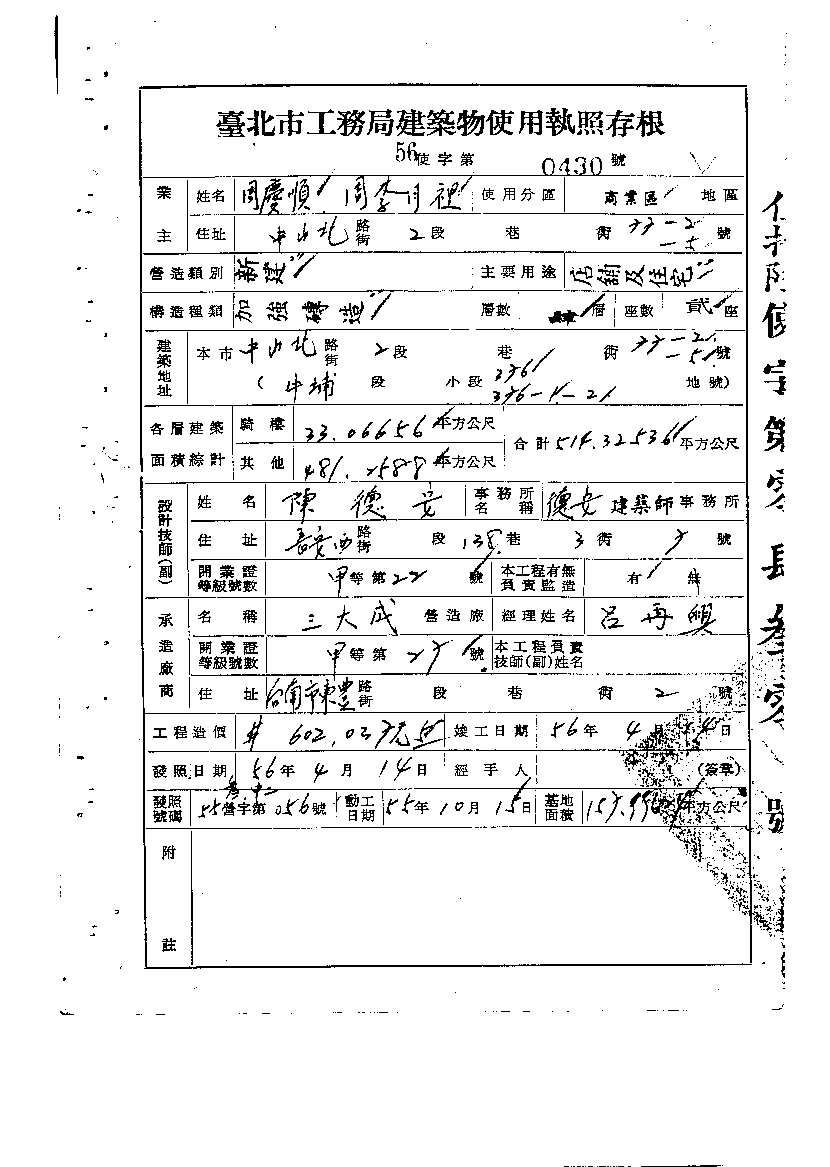 臺北市工務局建築物使用執照存根
56使字第 0430 號
業主 姓名 周慶順 周李月裡 使用分區 商業區 地區
住址 中山北 路街 2段 巷 街 號
營造類別 新建 主要用途 店舖及住宅
構造種類 加強磚造 層數 層 座數 貳座
建築地址 本市 中山北 路街 2段 巷 街 號
(中埔 段 小段 地號)
各層建築面積綜計 騎樓 33.06656平方公尺 合計 514.32536平方公尺
其他 481.2588平方公尺
設計技師(副) 姓名 陳德安 事務所名稱 德安建築師事務所
住址 長安西 路街 段 138巷 3衖 號
開業證等級號數 甲等第22號 本工程有無負責監造 有 無
承造廠商 名稱 三大成 營造廠 經理姓名 呂再興
開業證等級號數 甲等第 號 本工程負責技師(副)姓名
住址 台南市東豐 路街 段 巷 街 2 號
工程造價 竣工日期 56年4月14日
發照日期 56年4月14日 經手人 (簽章)
發照號碼 55營字第056號 動工日期 55年10月15日 基地面積 平方公尺
附註